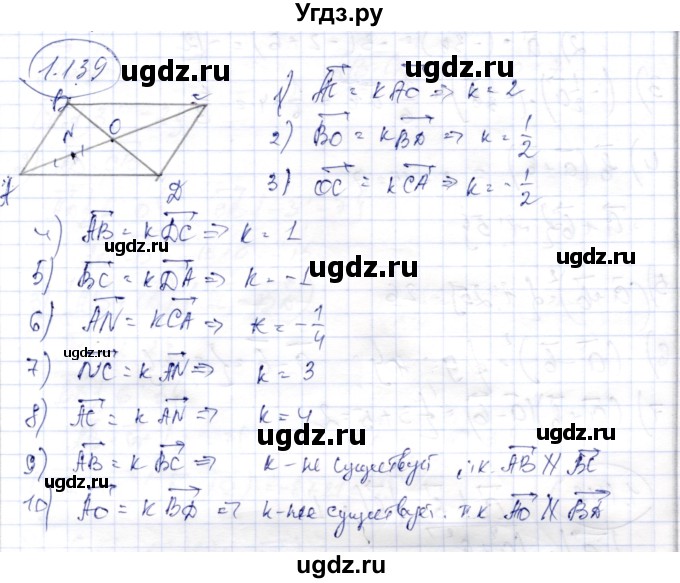 Угдз.ру
1.139
B C
N O
A D
1) AC = kAO => k = 2
2) BO = kBD => k = 1/2
3) OC = kCA => k = -1/2
4) AB = kDC => k = 1
5) BC = kDA => k = -1
6) AN = kCA => k = -1/4
7) NC = kAN => k = 3
8) AC = kAN => k = 4
9) AB = kBC => k - не существует, т.к. AB ∦ BC
10) AO = kBD => k - не существует. т.к AO ∦ BD
ugdz.ru
ugdz.ru
ugdz.ru
ugdz.ru
ugdz.ru
ugdz.ru
ugdz.ru
ugdz.ru
ugdz.ru
ugdz.ru
ugdz.ru
ugdz.ru
ugdz.ru